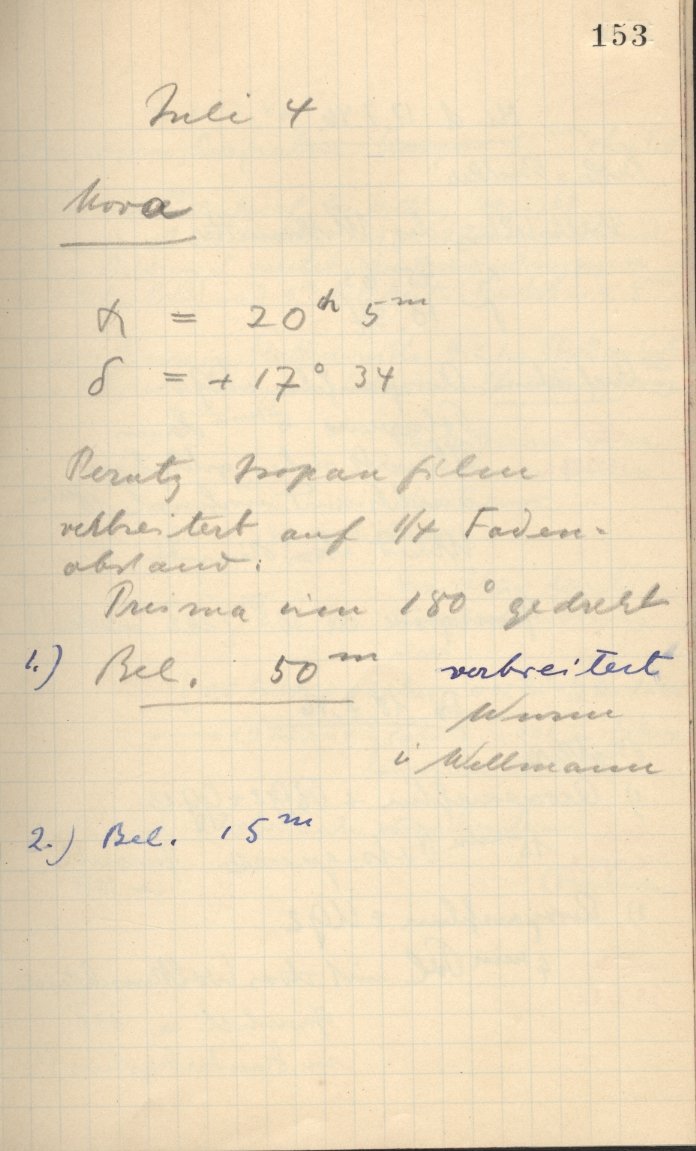 153
Juli 4
Nova
α = 20h 5m
δ = + 17° 34
Perutz Isopan film
verbreitert auf 1/4 Faden-
abstand.
Prisma um 180° gedreht
1.) Bel. 50m verbreitert
Wurm
u Wellmann
2.) Bel. 15m